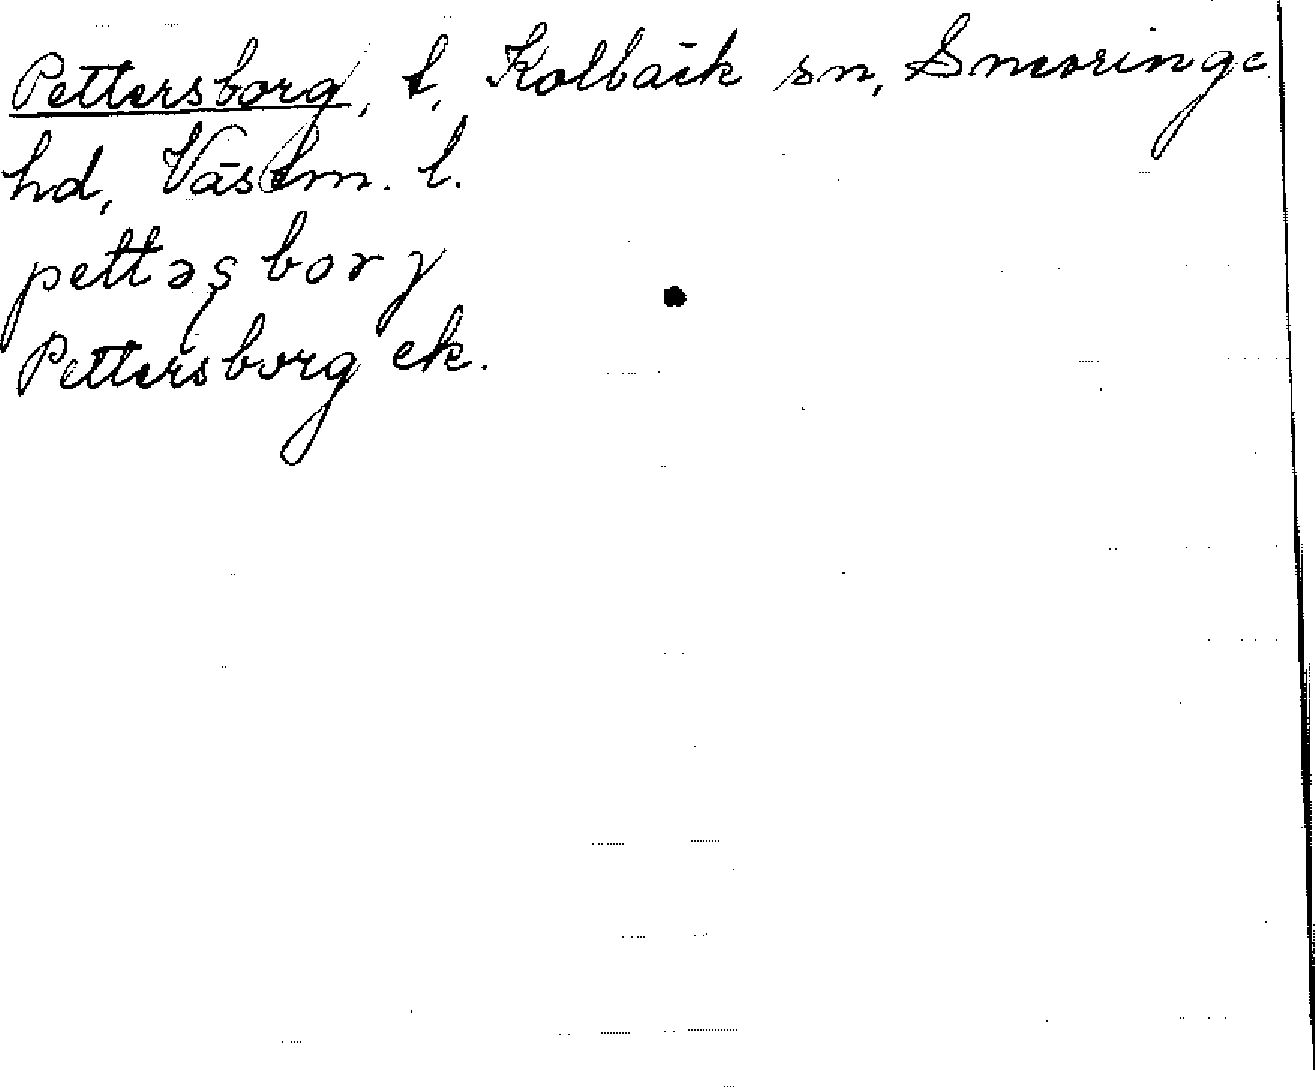 Pettersborg, t, Kolbäck sn, Snevringe
hd, Västm. l.
pettəș borγ
Pettersborg ek.